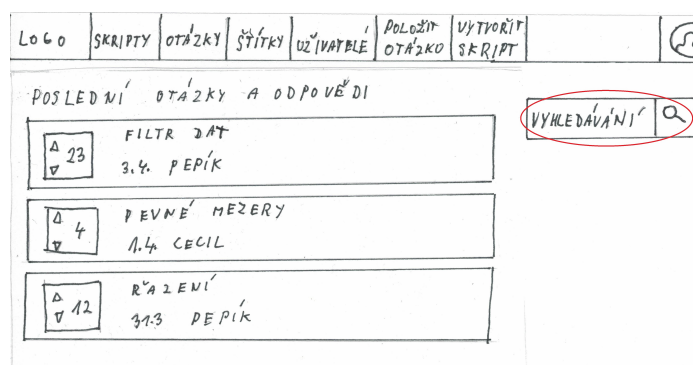 LOGO SKRIPTY OTÁZKY ŠTÍTKY UŽIVATELÉ POLOŽIT OTÁZKO VYTVOŘIT SKRIPT
POSLEDNÍ OTÁZKY A ODPOVĚDI
VYHLEDÁVÁNÍ
23
FILTR DAT
3.4. PEPÍK
4
PEVNÉ MEZERY
1.4. CECIL
12
ŘAZENÍ
31.3 PEPÍK